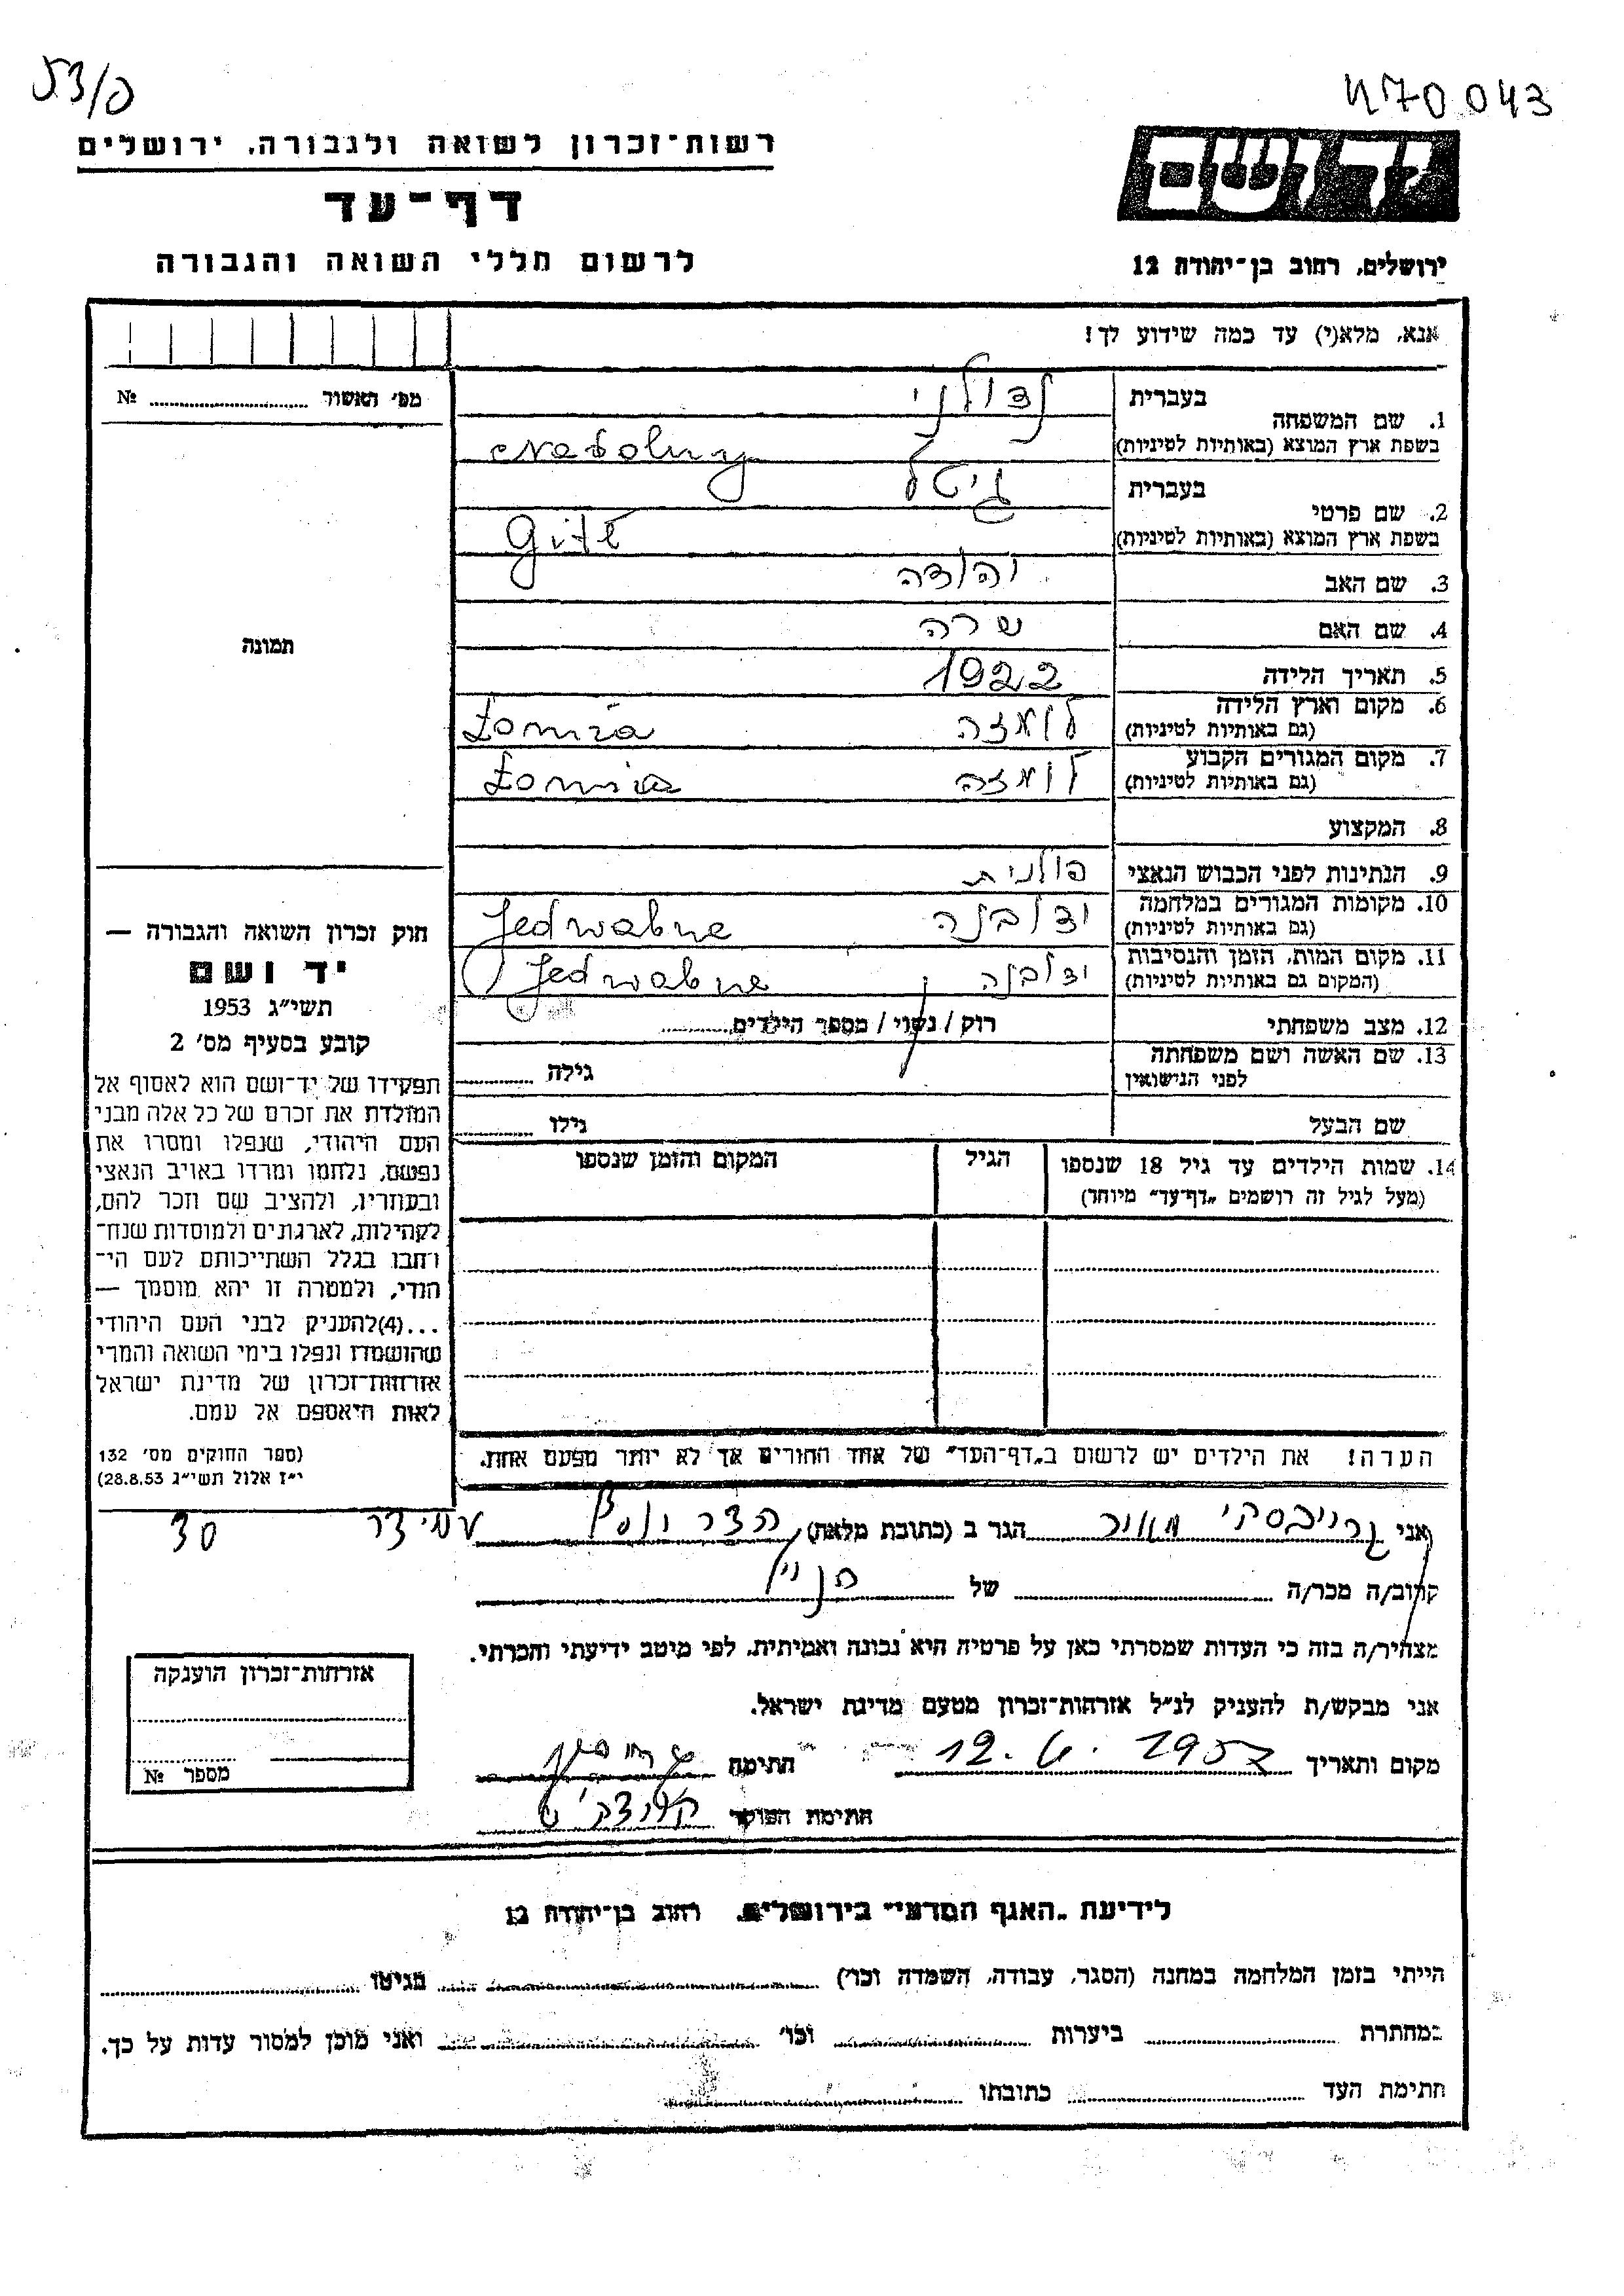 470043
53/פ
יד ושם
רשות־זכרון לשואה ולגבורה, ירושלים
דף־עד
לרשום חללי השואה והגבורה
ירושלים, רחוב בן־יהודה 12
אנא, מלא(י) עד כמה שידוע לך!
מס׳ האשור ........ №
תמונה
1. שם המשפחה
בעברית נדולני
בשפת ארץ המוצא (באותיות לטיניות) Nadolny
2. שם פרטי
בעברית גיטל
בשפת ארץ המוצא (באותיות לטיניות) Gitl
3. שם האב יהודה
4. שם האם שרה
5. תאריך הלידה 1922
6. מקום וארץ הלידה לומזה Łomża
(גם באותיות לטיניות)
7. מקום המגורים הקבוע לומזה Łomża
(גם באותיות לטיניות)
8. המקצוע
9. הנתינות לפני הכבוש הנאצי פולנית
10. מקומות המגורים במלחמה ידובנה Jedwabne
(גם באותיות לטיניות)
11. מקום המות, הזמן והנסיבות ידובנה Jedwabne
(המקום גם באותיות לטיניות)
12. מצב משפחתי רווק / נשוי / מספר הילדים........
13. שם האשה ושם משפחתה
לפני הנישואין גילה ........
שם הבעל גילו ........
14. שמות הילדים עד גיל 18 שנספו הגיל המקום והזמן שנספו
(מעל לגיל זה רושמים „דף־עד״ מיוחד)
הערה! את הילדים יש לרשום ב„דף־העד״ של אחד ההורים אך לא יותר מפעם אחת.
חוק זכרון השואה והגבורה —
יד ושם
תשי״ג 1953
קובע בסעיף מס׳ 2
תפקידו של יד־ושם הוא לאסוף אל
המולדת את זכרם של כל אלה מבני
העם היהודי, שנפלו ומסרו את
נפשם, נלחמו ומרדו באויב הנאצי
ובעוזריו, ולהציב שם וזכר להם,
לקהילות, לארגונים ולמוסדות שנח־
רבו בגלל השתייכותם לעם הי־
הודי, ולמטרה זו יהא מוסמך —
...(4)להעניק לבני העם היהודי
שהושמדו ונפלו בימי השואה והמרי
אזרחות־זכרון של מדינת ישראל
לאות היאספם אל עמם.
(ספר החוקים מס׳ 132
י״ז אלול תשי״ג 28.8.53)
אני מאיר הגר ב (כתובת מלאה) עמידר 30
קרוב/ה מכר/ה של הנ״ל
מצהיר/ה בזה כי העדות שמסרתי כאן על פרטיה היא נכונה ואמיתית, לפי מיטב ידיעתי והכרתי.
אני מבקש/ת להעניק לנ״ל אזרחות־זכרון מטעם מדינת ישראל.
מקום ותאריך 12.6.1957 חתימה
חתימת הפוקד
אזרחות־זכרון הוענקה
מספר №
לידיעת „האגף המדעי״ בירושלים, רחוב בן־יהודה 12
הייתי בזמן המלחמה במחנה (הסגר, עבודה, השמדה וכו׳) ........ בגיטו ........
במחתרת ........ ביערות ........ וכו׳ ........ ואני מוכן למסור עדות על כך.
חתימת העד ........ כתובתו ........